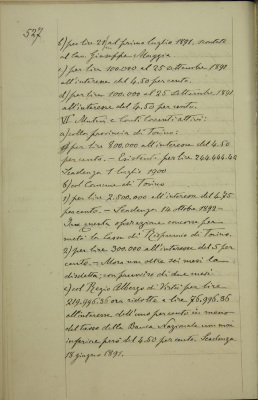 527.
b) per lire 20/m al primo luglio 1891. scontate
al Cav. Giuseppe Muggia
c) per lire 100.000 al 25 settembre 1891
all'interesse del 4.50 per cento.
d) per lire 100.000 al 25 settembre 1891
all'interesse del 4.50 per cento.
VI Mutui e Conti Correnti attivi:
a) colla provincia di Torino:
per lire 800.000 all'interesse del 4.50
per cento. - Esistenti per lire 744.444.44
Scadenza 1 luglio 1900
b) col Comune di Torino
1) per lire 2.500.000 all'interesse del 4.75
per cento. - Scadenza 14 ottobre 1892 -
In questa operazione concorre per
metà la Cassa di Risparmio di Torino.
2) per lire 300.000 all'interesse del 5 per
cento. - Mora non oltre sei mesi la
disdetta, con preavviso di due mesi
c) col Regio Albergo di Virtù per lire
219.996.36 ora ridotte a lire 76.996.36
all'interesse dell'uno per cento in meno
del tasso della Banca Nazionale non mai
inferiore però del 4.50 per cento. Scadenza
18 giugno 1891.